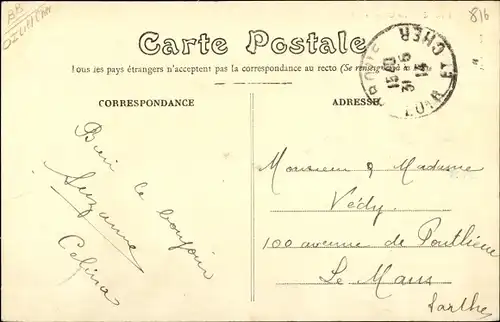 816
Carte Postale
Tous les pays étrangers n'acceptent pas la correspondance au recto (Se renseigner à la
CORRESPONDANCE
ADRESSE
ET CHER
LOIR
15 40
31 - 5
14
Bien le bonjour
Suzanne
Celina
Monsieur & Madame
Védy
100 avenue de Pontlieue
Le Mans
Sarthe